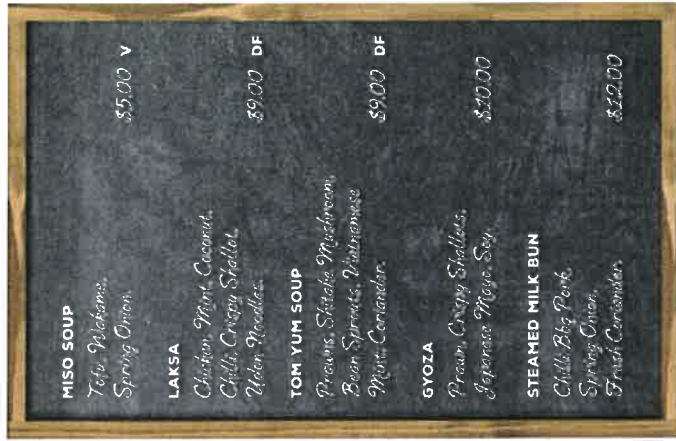 MISO SOUP
Tofu, Wakame,
Spring Onion. $5.00 V
LAKSA
Chicken, Mint, Coconut,
Chilli, Crispy Shallot,
Udon Noodles. $9.00 DF
TOM YUM SOUP
Prawns, Shitake Mushroom,
Bean Sprouts, Vietnamese
Mint, Coriander. $9.00 DF
GYOZA
Prawn, Crispy Shallots,
Japanese Mayo, Soy. $10.00
STEAMED MILK BUN
Chilli Bbq Pork,
Spring Onion,
Fresh Coriander. $12.00